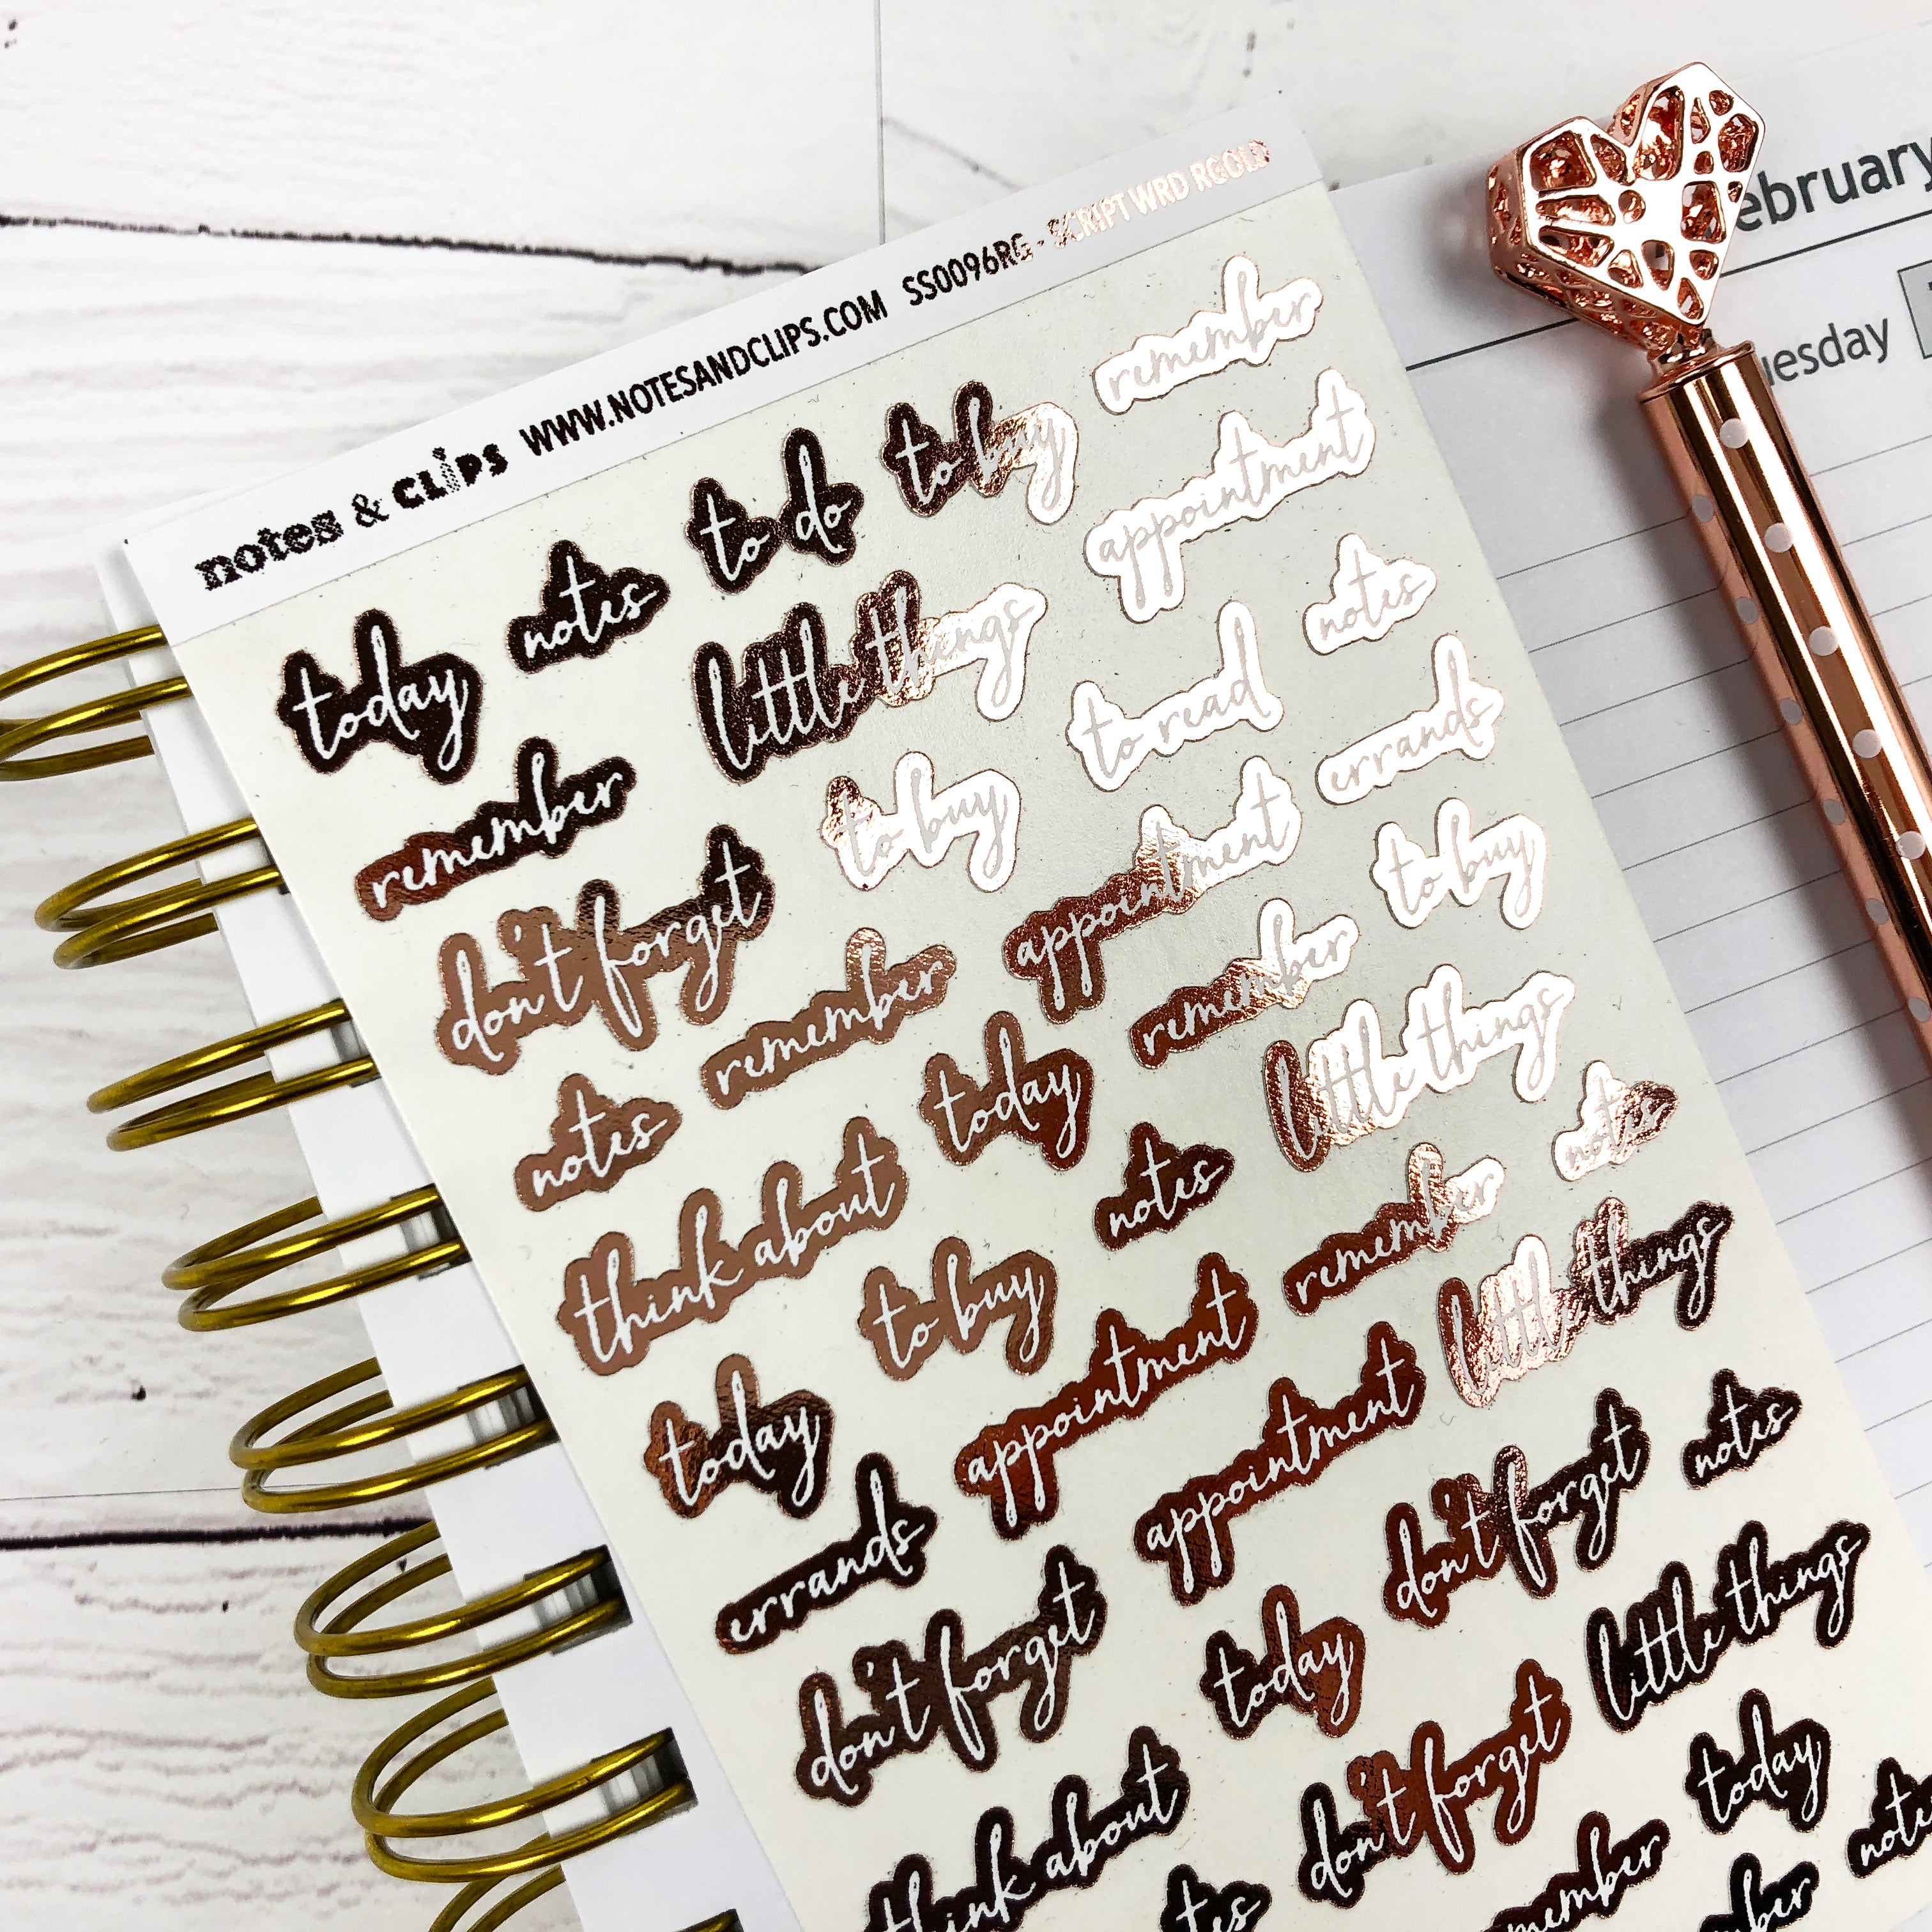 notes & CLiPS WWW.NOTESANDCLIPS.COM SS0096RG - SCRIPT WRD RGOLD
today notes to do to buy remember
remember little things appointment
don't forget to buy to read notes
notes remember appointment errands
think about today remember to buy
today to buy notes little things
errands appointment remember notes
don't forget appointment little things
think about today don't forget notes
notes don't forget little things
remember today
notes
ebruary
uesday